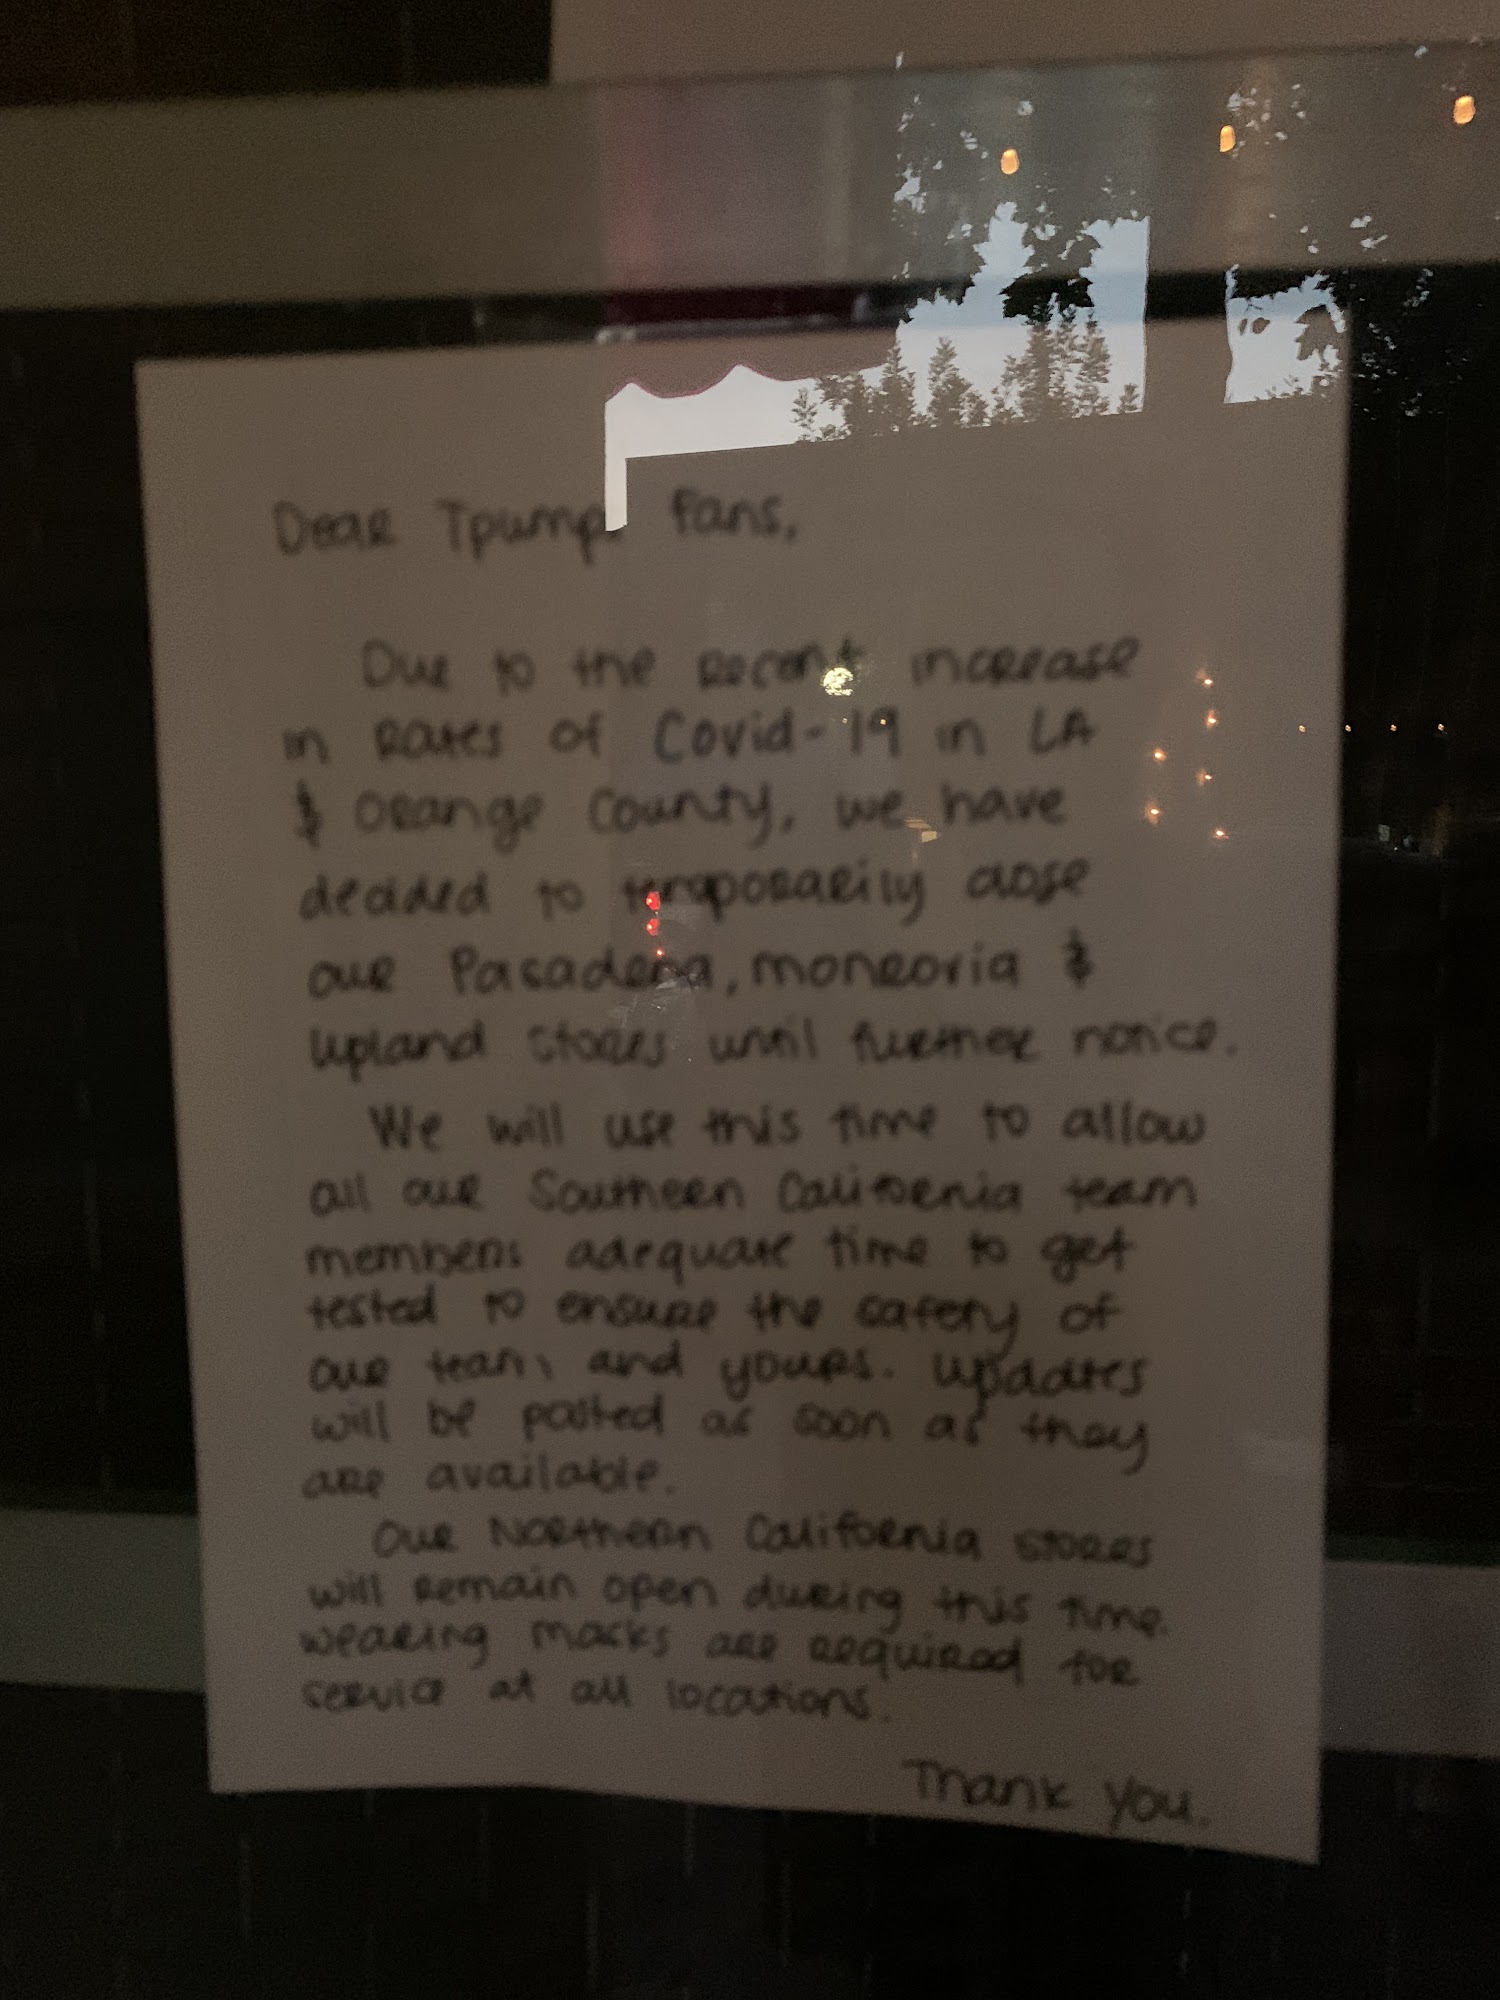 Dear Tpumps Fans,
Due to the recent increase
in rates of Covid-19 in LA
& Orange County, we have
decided to temporarily close
our Pasadena, monrovia &
Upland stores until further notice.
We will use this time to allow
all our Southern California team
members adequate time to get
tested to ensure the safety of
our team and yours. Updates
will be posted as soon as they
are available.
Our Northern California stores
will remain open during this time.
wearing masks are required for
service at all locations.
Thank you.